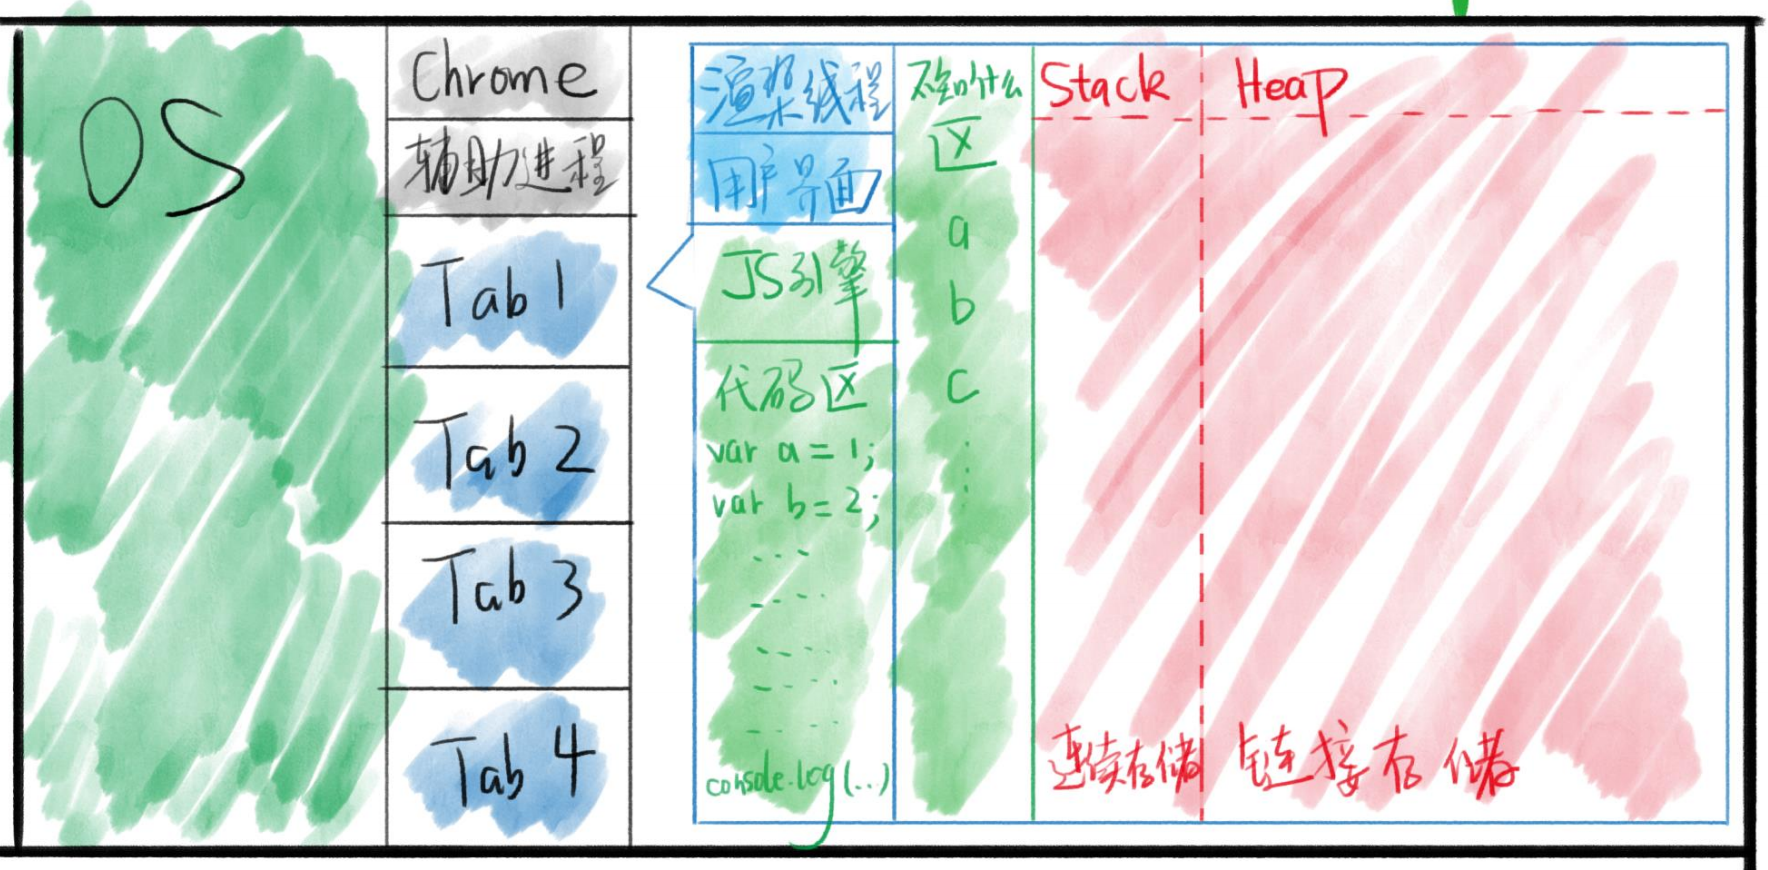 OS
Chrome
辅助进程
Tab 1
Tab 2
Tab 3
Tab 4
渲染线程
用户界面
JS引擎
代码区
var a = 1;
var b = 2;
console.log(..)
不知什么
区
a
b
c
Stack
连续存储
Heap
链接存储